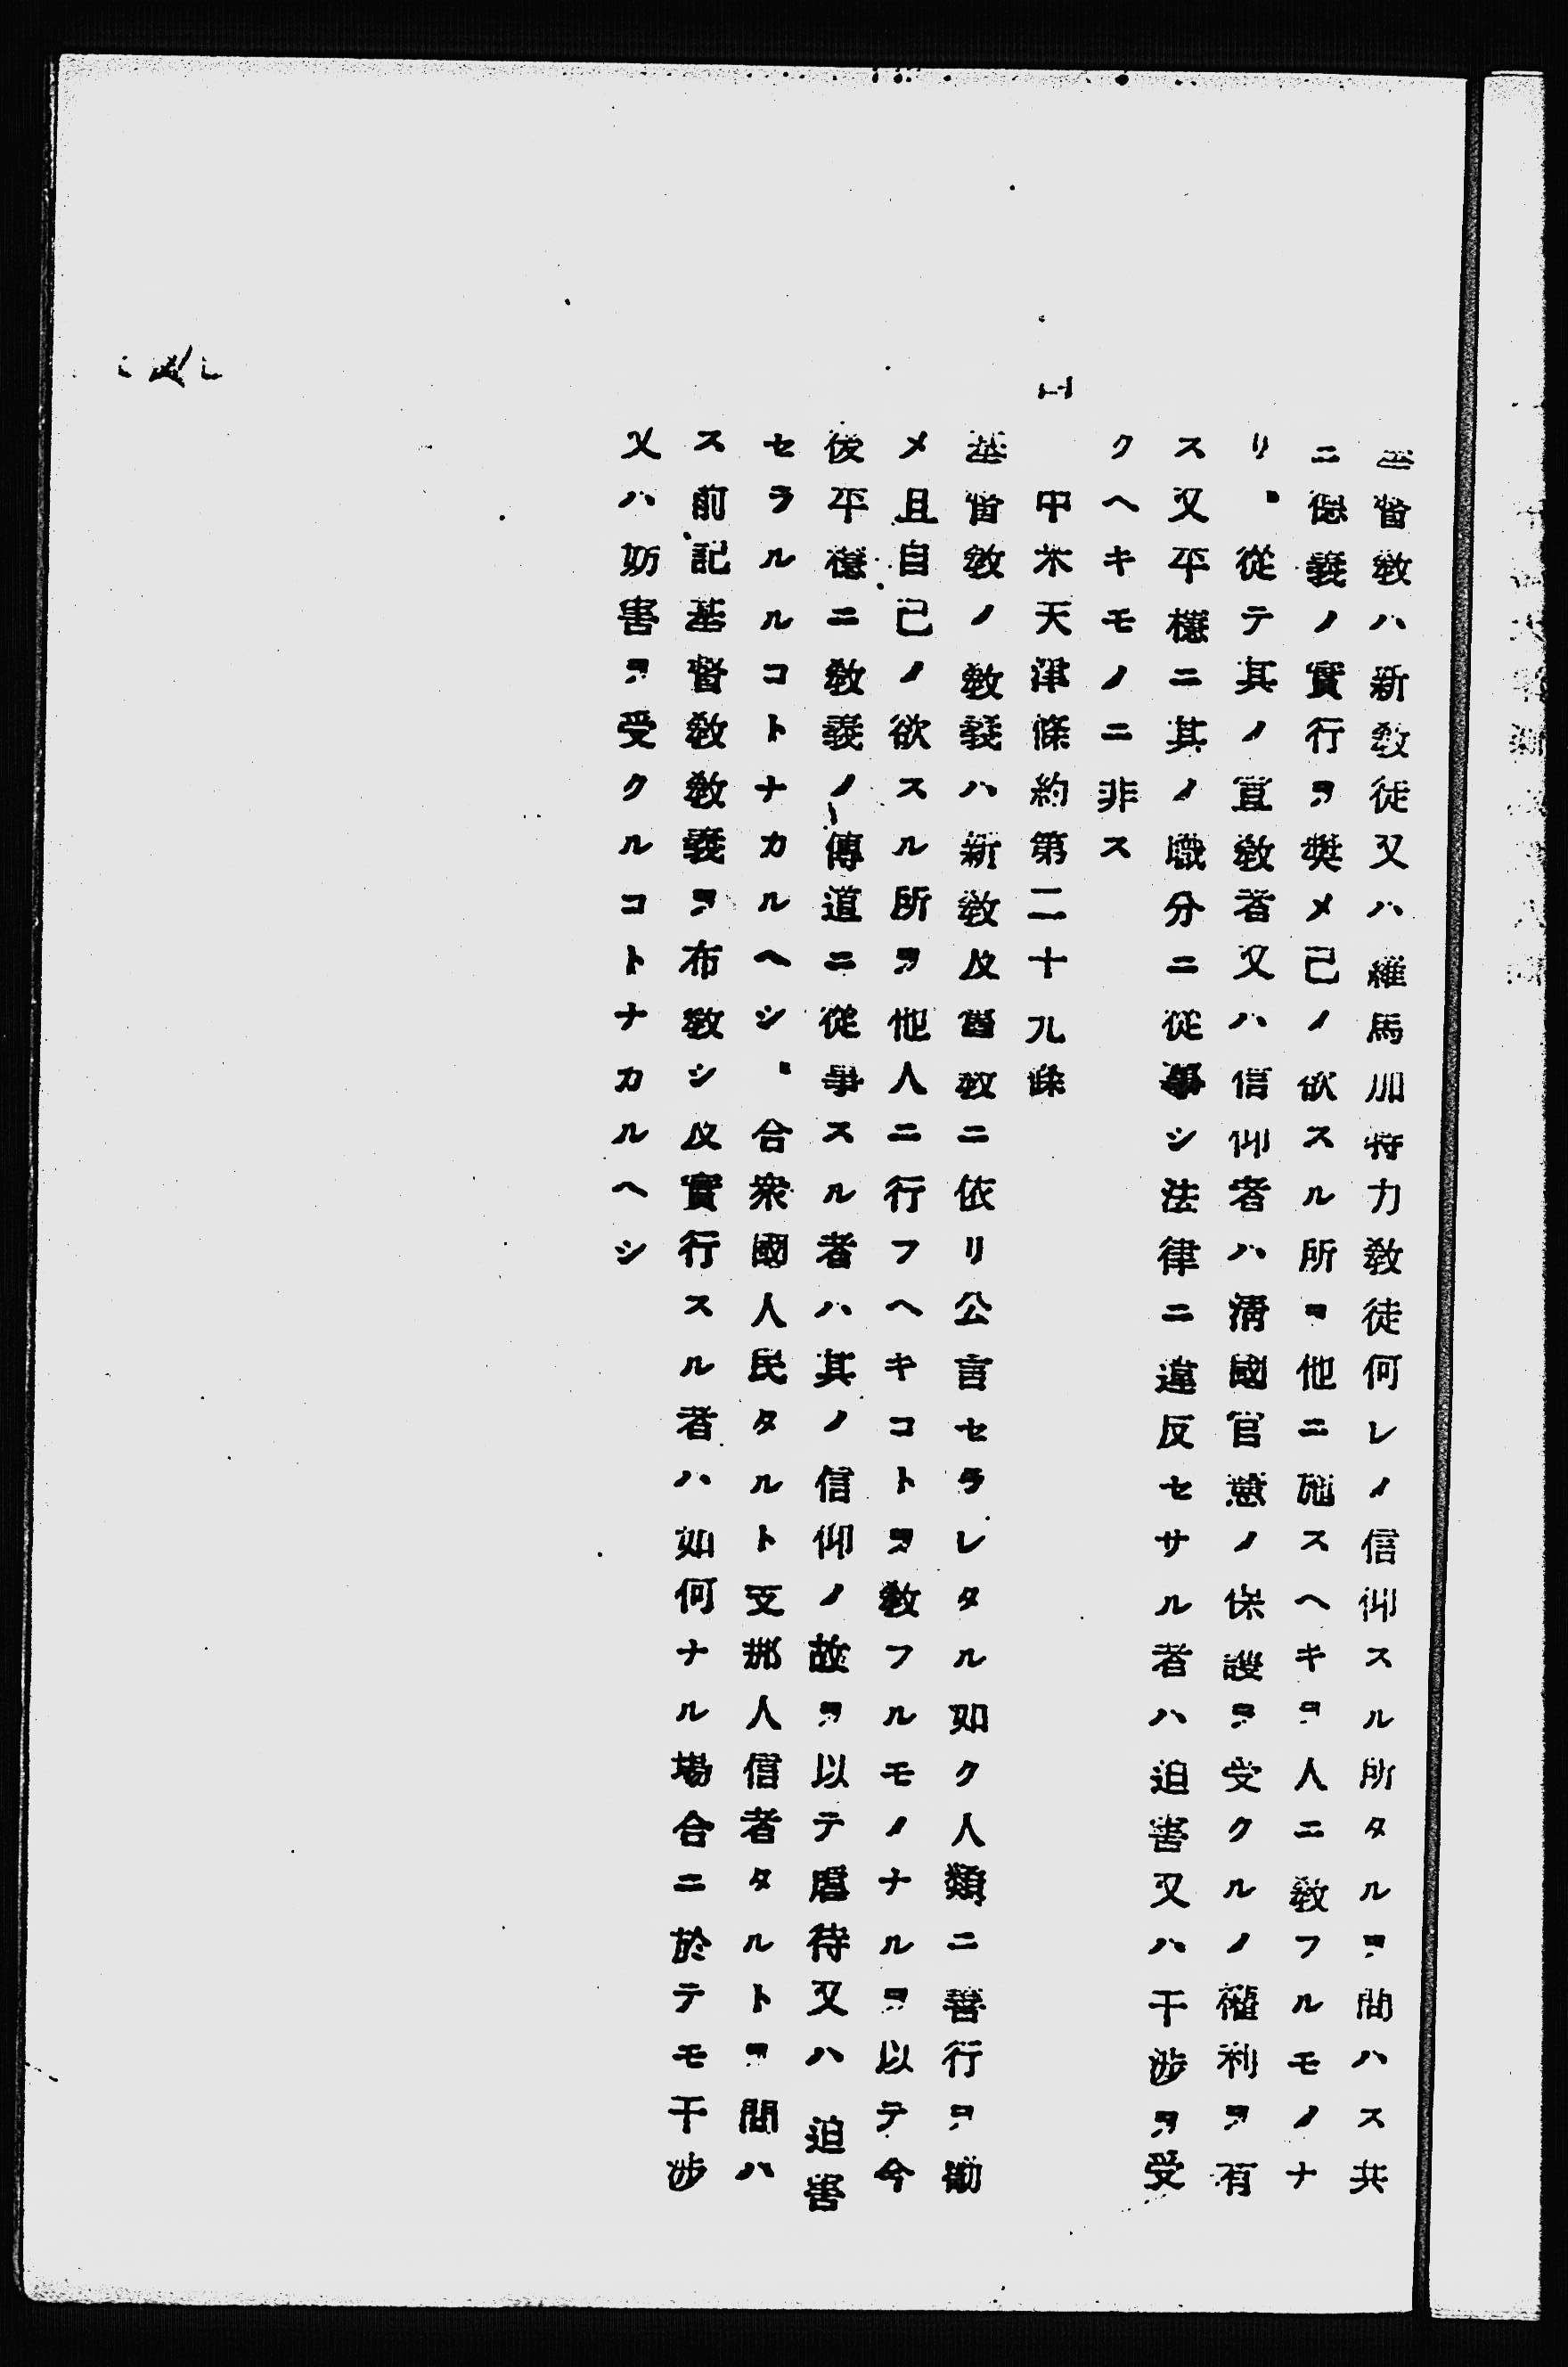 基督敎ハ新敎徒又ハ羅馬加特力敎徒何レノ信仰スル所タルヲ問ハス共
ニ德義ノ實行ヲ奬メ己ノ欲スル所ヲ他ニ施スヘキヲ人ニ敎フルモノナ
リ、從テ其ノ宣敎者又ハ信仰者ハ淸國官憲ノ保護ヲ受クルノ權利ヲ有
ス又平穩ニ其ノ職分ニ從事シ法律ニ違反セサル者ハ迫害又ハ干涉ヲ受
クヘキモノニ非ス
中米天津條約第二十九條
基督敎ノ敎義ハ新敎及舊敎ニ依リ公言セラレタル如ク人類ニ善行ヲ勸
メ且自己ノ欲スル所ヲ他人ニ行フヘキコトヲ敎フルモノナルヲ以テ今
後平穩ニ敎義ノ傳道ニ從事スル者ハ其ノ信仰ノ故ヲ以テ虐待又ハ迫害
セラルルコトナカルヘシ、合衆國人民タルト支那人信者タルトヲ問ハ
ス前記基督敎敎義ヲ布敎シ及實行スル者ハ如何ナル場合ニ於テモ干涉
又ハ妨害ヲ受クルコトナカルヘシ